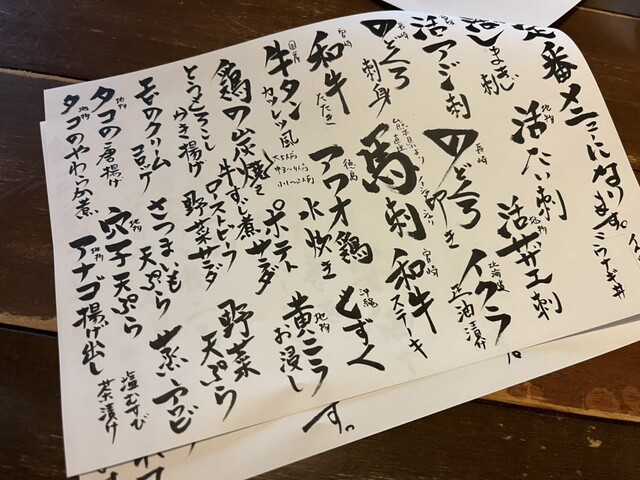 番メニューになります。
活しまあじ刺 地物 活たい刺 地物 活サザエ刺
宮崎 活アジ刺 長崎 のどぐろ叩き 北海道 イクラ正油漬
長崎 のどぐろ刺身 熊本県より直送 馬刺 宮崎 和牛ステーキ
宮崎 和牛たたき 徳島 アワオ鶏水炊き 沖縄 もずく
国産 牛タンカツレツ風 地物 黄ニラお浸し
鶏の炭焼き ポテトサラダ 野菜天ぷら
とうもろこしかき揚げ 牛すじ煮 ローストビーフ野菜サラダ
エビのクリームコロッケ さつまいも天ぷら 蒸しアワビ
地物 タコの唐揚げ 地物 穴子天ぷら 塩むすび
地物 タコのやわらか煮 地物 アナゴ揚げ出し 茶漬け
す。